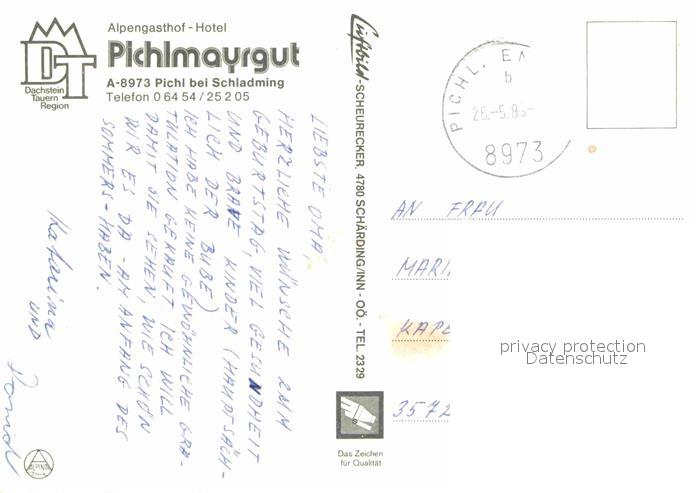 Alpengasthof - Hotel
Pichlmayrgut
A-8973 Pichl bei Schladming
Telefon 0 64 54 / 25 2 05
DT
Dachstein
Tauern
Region
LIEBSTE OMA,
HERZLICHE WÜNSCHE ZUM
GEBURTSTAG, VIEL GESUNDHEIT
UND BRAVE KINDER (HAUPTSÄCH-
LICH DER BUBE)
ICH HABE KEINE GEWÖHNLICHE GRA-
TULATION GEKAUFT ICH WILL
DAMIT SIE SEHEN, WIE SCHÖN
WIR ES DA - AM ANFANG DES
SOMMERS - HABEN.
Katarina
UND
ALPINA
Luftbild-SCHEURECKER, 4780 SCHÄRDING/INN - OÖ. - TEL. 2329
Das Zeichen
für Qualität
PICHL, EN
b
26.-5.86-
8973
AN FRAU
MARI
KAPE
3572
privacy protection
Datenschutz